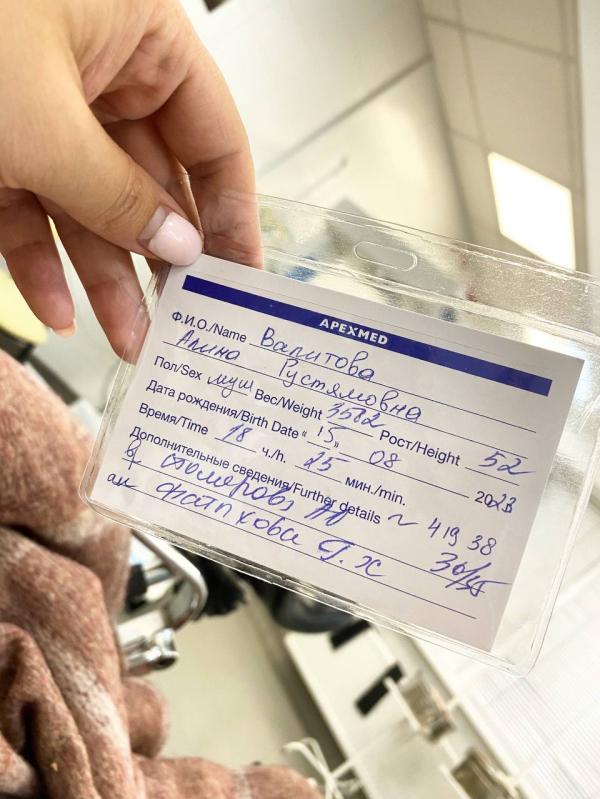 APEXMED
Ф.И.О./Name Валитова
Алина Рустямовна
Пол/Sex муш Вес/Weight 3582 Рост/Height 52
Дата рождения/Birth Date " 15 „ 08 2023
Время/Time 18 ч./h. 25 мин./min.
Дополнительные сведения/Further details ~ 419 38
36/35
ак Фаткова Г.х